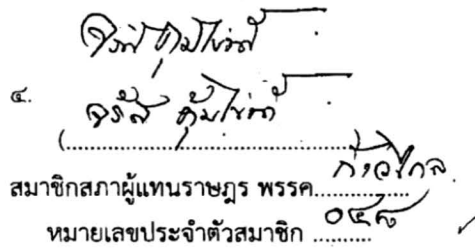 จรัส คุ้มไข่น้ำ
๔. จรัส คุ้มไข่น้ำ
(..................................................)
สมาชิกสภาผู้แทนราษฎร พรรค ก้าวไกล
หมายเลขประจำตัวสมาชิก ๐๔๘